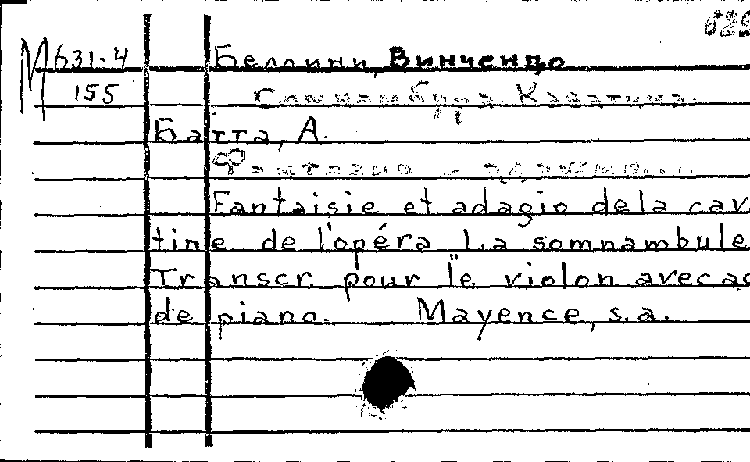 М 631-4 Беллини, Винченцо
155 Сомнамбула Каватина.
Батта, А.
Фантазия - адажио...
Fantaisie et adagio dela cav
tine de l'opéra La somnambule
Transcr. pour le violon avec ac
de piano. Mayence, s.a.